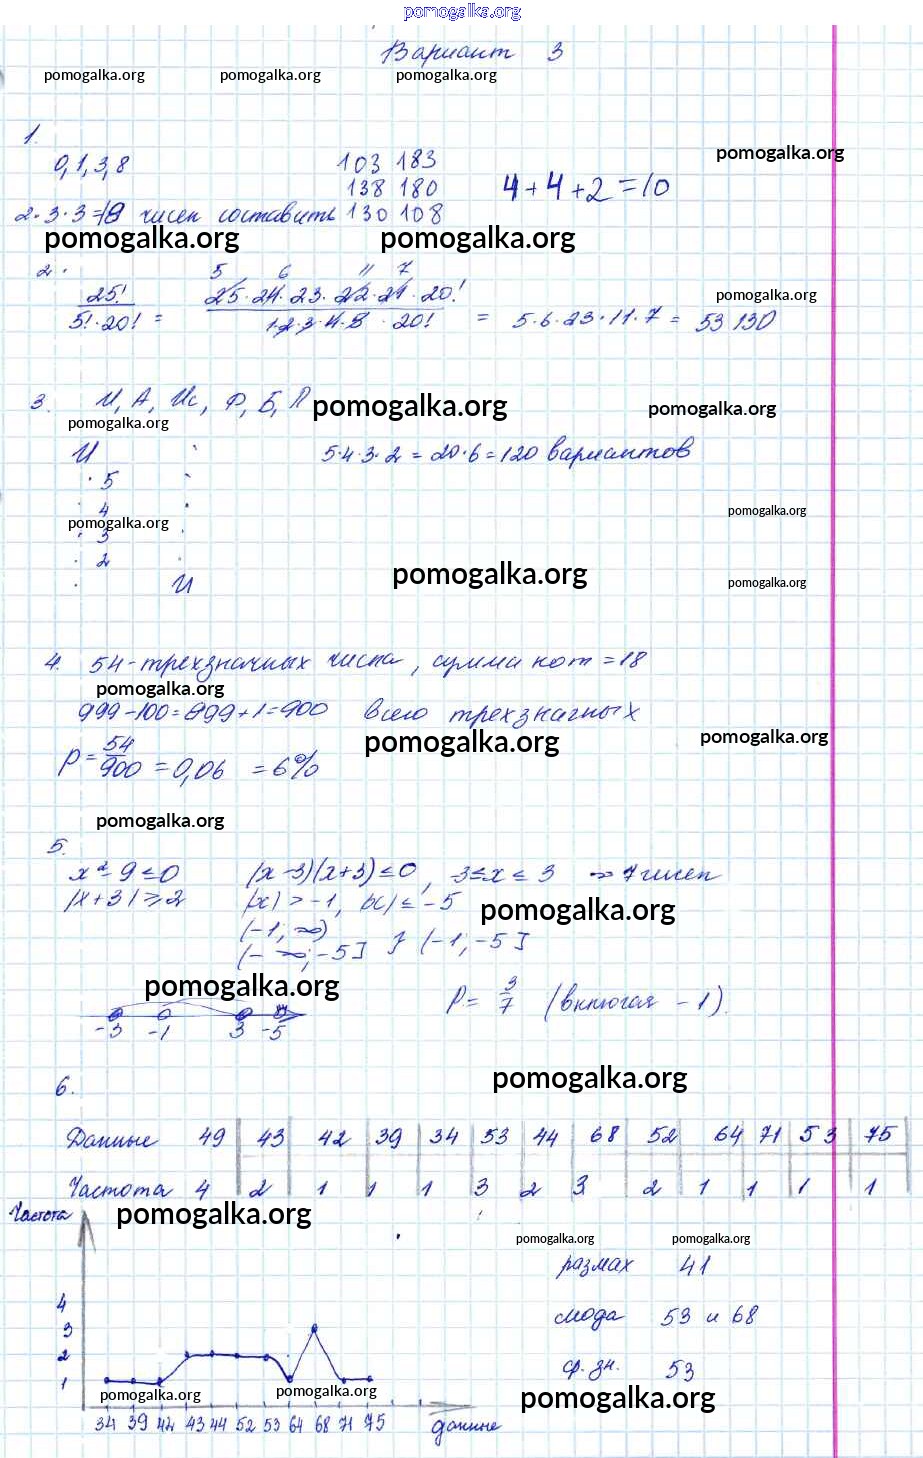 pomogalka.org
Вариант 3
pomogalka.org pomogalka.org pomogalka.org
1.
0,1,3,8 103 183
pomogalka.org
138 180 4+4+2=10
2·3·3=18 чисел составить 130 108
pomogalka.org pomogalka.org
2.
5 6 11 7
25! 25·24·23·22·21·20!
pomogalka.org
5!·20! = 1·2·3·4·5 · 20! = 5·6·23·11·7 = 53 130
3. И, А, Ис, Ф, Б, Л
pomogalka.org pomogalka.org
pomogalka.org
И 5·4·3·2 = 20·6=120 вариантов
5
4
pomogalka.org
pomogalka.org
3
2
pomogalka.org pomogalka.org
И
4. 54-трехзначных числа, сумма кот=18
pomogalka.org
999-100=899+1=900 всего трехзначных
pomogalka.org pomogalka.org
P=54/900=0,06 =6%
pomogalka.org
5.
x²-9≤0 (x-3)(x+3)≤0, 3≤x≤3 7 чисел
|x+3|≥2 |x|>-1, |x|≤-5
pomogalka.org
(-1;∞)
(-∞;-5] } (-1;-5]
pomogalka.org
P=3/7 (включая -1).
-3 -1 3 -5
pomogalka.org
6.
Данные 49 43 42 39 34 53 44 68 52 64 71 53 75
Частота 4 2 1 1 1 3 2 3 2 1 1 1 1
Частота
pomogalka.org
pomogalka.org pomogalka.org
размах 41
4
мода 53 и 68
3
2
ср.зн. 53
1
pomogalka.org pomogalka.org pomogalka.org
34 39 44 43 44 52 53 64 68 71 75 данные